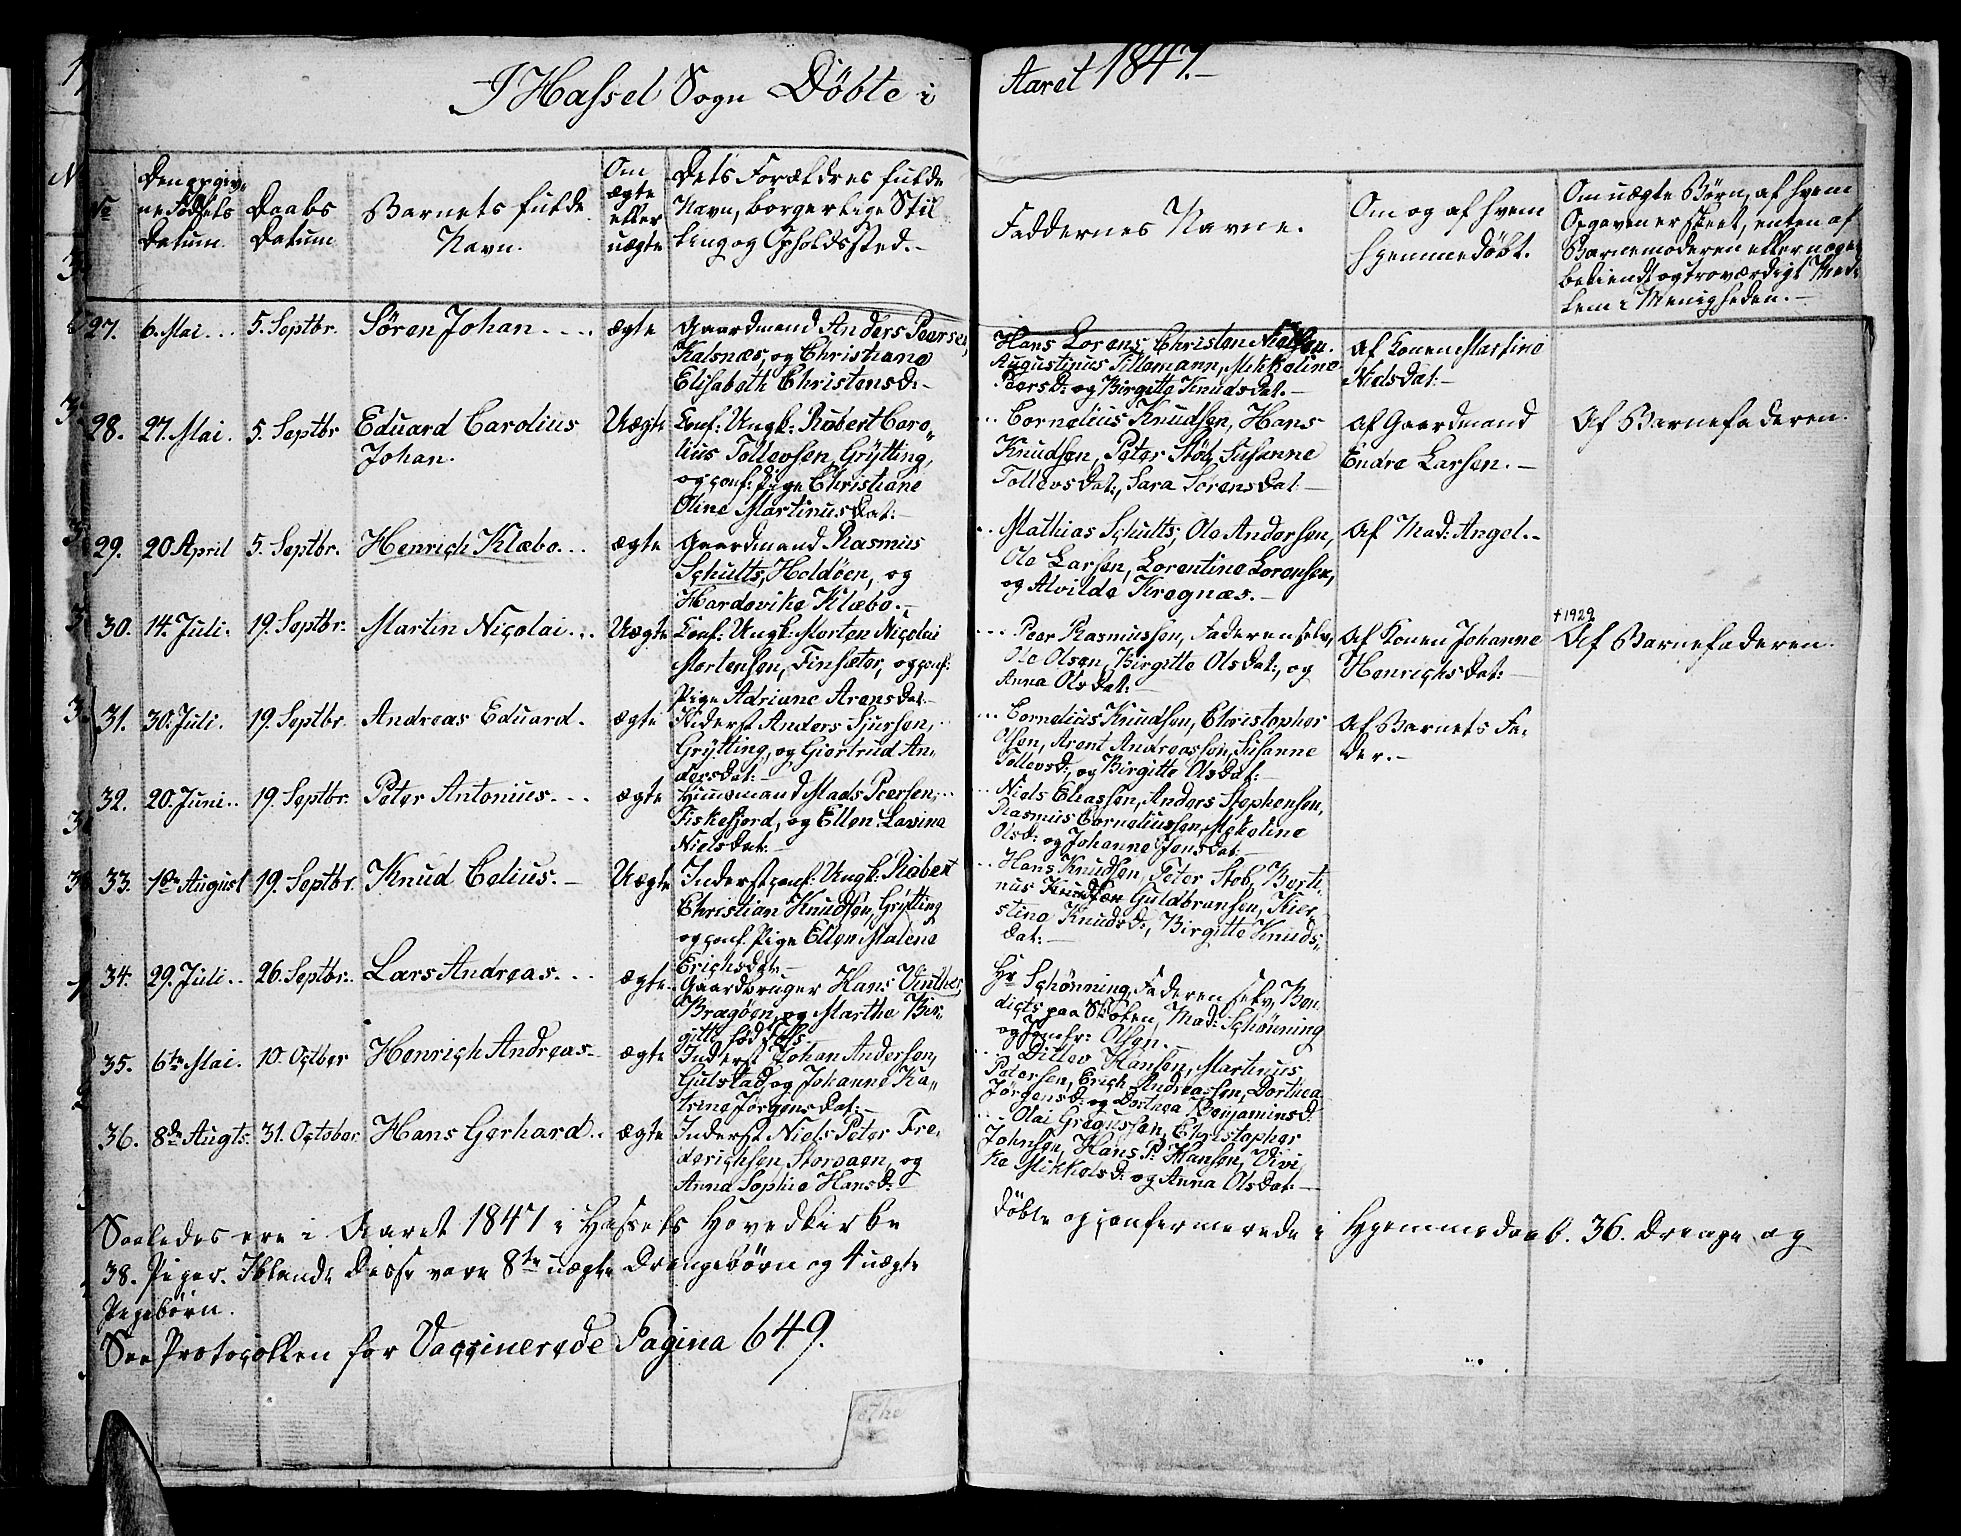 I Hassel Sogn Døbte i Aaret 1847.-
No
Den opgiv-
ne Fødsels
Datum.
Daabs
Datum
Barnets fulde
Navn.
Om
ægte
eller
uægte
Dets Forældres fulde
Navn, borgerlige Stil
ling og Opholdssted.-
Faddernes Navne.
Om og af hvem
hjemmedøbt.
Om uægte Børn, af hvem
Opgaven er skeet, enten af
Barnemoderen eller noget
bekiendt og troværdigt Med-
lem i Menigheden.-
27. 6. Mai... 5. Septbr. Søren Johan.... ægte
Gaardmand Anders Peersen,
Kalsnæs, og Christiane
Elisabeth Christensd:-
Hans Lorens, Christen Nielsen.
Augustinus Tillemann, Mekkeline
Peersd: og Birgitte Knudsdat.-
Af Konen Martine
Nielsdat:-
28. 27. Mai. 5. Septbr Eduard Carolius
Johan.
Uægte
Conf: Ungk: Robert Caro„
lius Tollevsen Grytting,
og conf: Pige Christiane
Oline Martinusdat:-
Cornelius Knudsen, Hans
Knudsen, Peter Stob, Susanne
Tollevsdat:, Sara Sorensdat-
Af Gaardmand
Endre Larsen.-
Af Barnefaderen.
29. 20 April 5. Septbr. Henrich Klæbo... ægte
Gaardmand Rasmus
Schults, Holdöen, og
Hardevike Klæbo.-
Mathias Schults, Ole Andersen,
Ole Larsen, Lorentine Lorensen,
og Alvilde Kregnæs.-
Af Mad: Angel.-
30. 14. Juli. 19. Septbr. Martin Niçolai... Uægte
Conf: Ungk: Morten Niçolai
Mortensen, Finsæter, og conf:
Pige Adriane Arensdat-
Peer Rasmussen, Faderen selv,
Ole Olsen, Birgitte Olsdat:, og
Anna Olsdat:-
Af Konen Johanne
Henrichsdat:-
†1929
Af Barnefaderen.
31. 30. Juli. 19. Septbr. Andreas Eduard. ægte
Inderst Anders Sjursen,
Grytting, og Giertrud An-
dersdat:-
Cornelius Knudsen, Christopher
Olsen, Arent Andreassen, Susanne
Tollevsd:, og Birgitte Olsdat:-
Af Barnets Fa-
der.-
32. 20. Juni.. 19. Septbr. Peter Antonius... ægte
Huusmand Mads Peersen,
Fiskefjord, og Ellen Lavina
Nielsdat:-
Niels Eliassen, Anders Stephensen,
Rasmus Corneliussen, Mekeline
Olsd: og Johanne Jonsdat-
33. 10de August 19. Septbr. Knud Celius.- Uægte
Inderst, conf: Ungk: Robert
Christian Knudsen, Grytting
og conf. Pige Ellen Malene
Erichsdat-
Hans Knudsen, Peter Stob, Berti,
nus Knudsen Guldbransen, Kier
stine Knudsd:, Birgitte Knuds„
dat:-
34. 29. Juli.. 26. Septbr.. Lars Andreas... ægte.
Gaardbruger Hans Vinther
Bragöen, og Marthe Bir-
gitte fød Falch-
Hr Schönning, Faderen selv, Ben
dicts paa Stolen, Mad: Schönning
og Jomfr: Olsen.-
35. 6te Mai. 10. Octber Henrich Andreas- ægte
Inderst Johan Andersen,
Gulstad, og Johanne Ka„
trine Jörgensdat:-
Ditlev Hansen, Martinus
Petersen, Erich Andreassen, Dorthea
Jörgensd: og Dorthea Benjaminsd:
36. 8de Augts. 31. October Hans Gerhard.. ægte
Inderst Niels Peter Fre-
derichsen Storvaen, og
Anna Sophie Hansd:-
Olai Gregussen, Christopher
Johnsen, Hans P. Hansen, Vivi,
ke Mikkelsd: og Anna Olsdat:-
Saaledes ere i Aaret 1847 i Hassels Hovedkirke døbte og confirmerede i Hjemmedaab. 36. Drenge og
38. Piger. Iblandt disse vare 8te uægte Drengebørn og 4 uægte
Pigebørn.
See Protocollen for Vaccinerede Pagina 649.